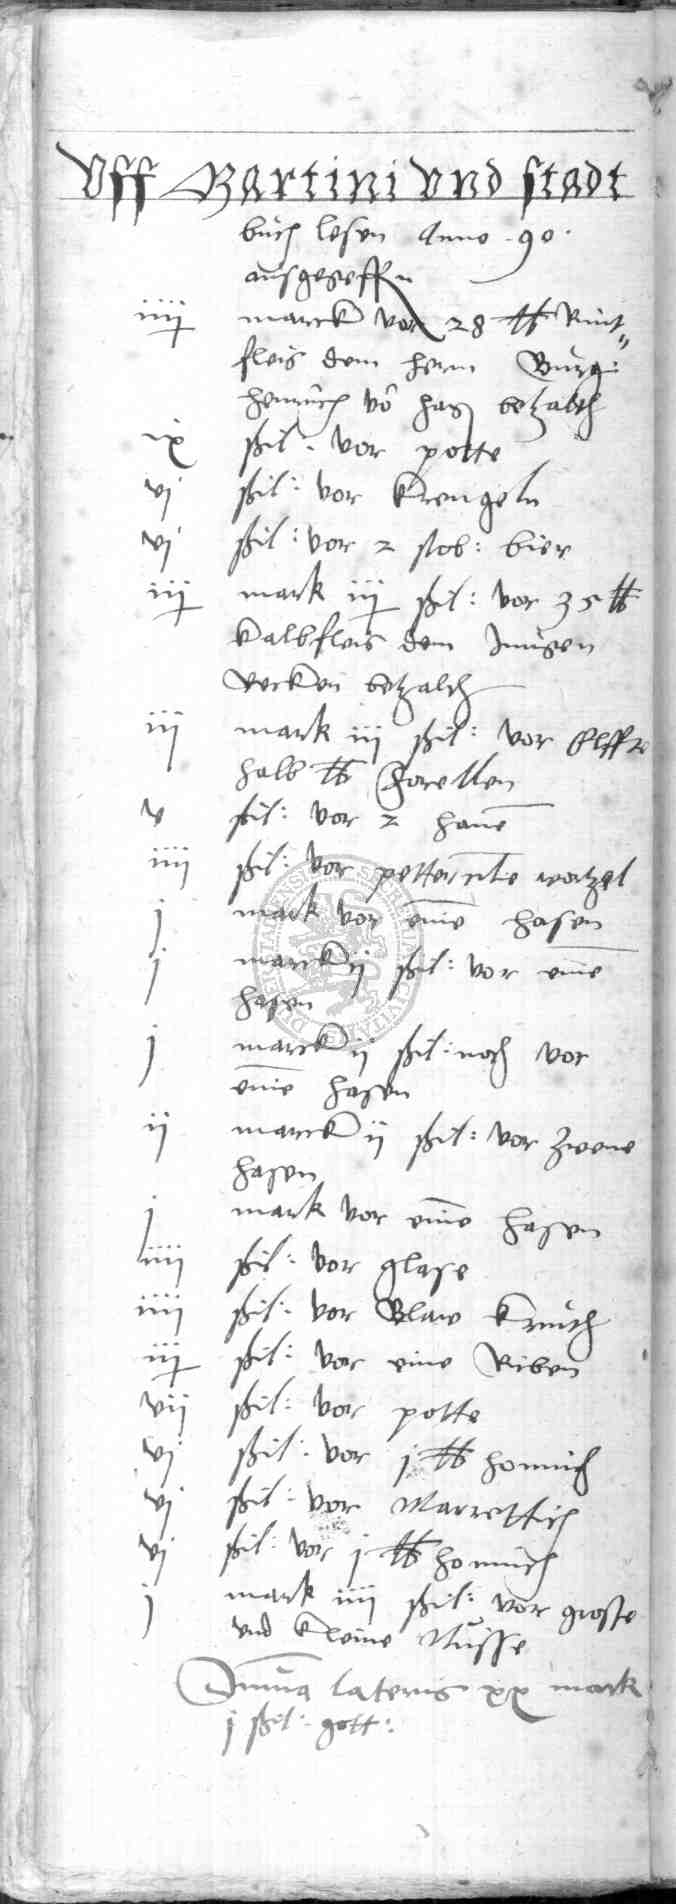 Uff Martini und stadt
buch lesen Anno .90.
ausgegeffen
iiij marck vor 28 ℔ Rint„
fleis dem herrn Burg:
henrich vō hag betzalth
ix ßil: vor potte
vj ßil: vor krengeln
vj ßil: vor 2 stob: bier
iij mark iij ßil: vor 35 ℔
kalbfleis dem Jungen
betzalth
iij mark iij ßil: vor Elffte
halb ℔ Forellen
v ßil: vor 2 hane
iiij ßil: vor wortzel
j mark vor eine hasen
j marck ij ßil: vor eine
hasen
j marck ij ßil: noch vor
eine hasen
ij marck ij ßil: vor zwene
hasen
j mark vor eine hasen
iiij ßil: vor glase
iiij ßil: vor Blaw kruth
iij ßil: vor eine Riben
vij ßil: vor potte
vj ßil: vor j ℔ honnich
vj ßil: vor Marrettich
vj ßil: vor j ℔ honnich
j mark iiij ßil: vor groste
und kleine Nüsse
Suma lateris xx mark
j ßil: gott: